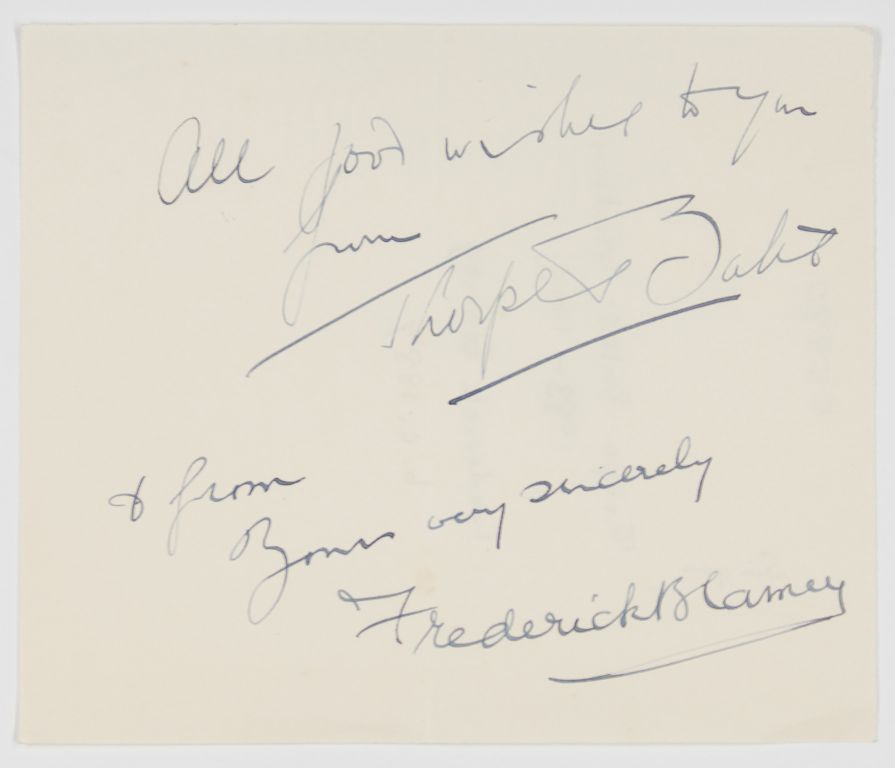 All good wishes to you
from
Thorpe Bates
& from
Yours very sincerely
Frederick Blamey